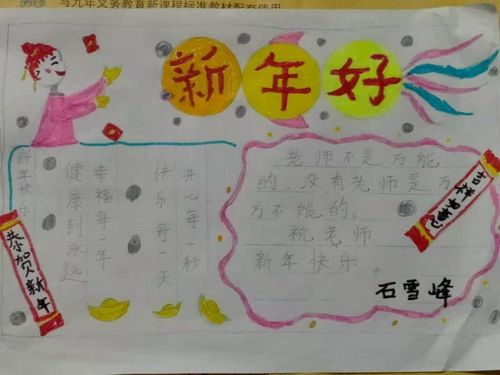 与九年义务教育新课程标准教材配套使用
新年好
新年快乐
开心每一秒
快乐每一天
幸福每一年
健康到永远
恭贺新年
老师不是万能
的，没有老师是万
万不能的。
祝老师
新年快乐。
吉祥如意
石雪峰